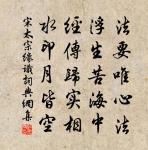 法要唯心法
浮生苦海中
經傳歸實相
水印月皆空
宋太宗緣識詞典網集